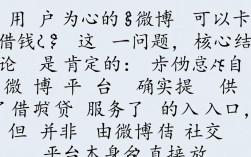 用 户 为心的 微博 可以卡
借钱 这 一问题，核心结
论 是肯定的： 自
微 博 平台 确实提 供
了借 贷 服务了 的入入口，
但 并非 由微博 社交
平台本身 直接放